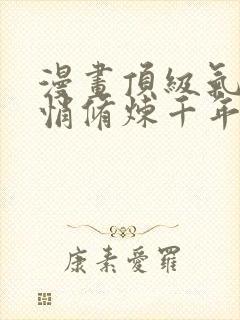 漫畫頂級氣
悄脩煉千年
康素愛羅